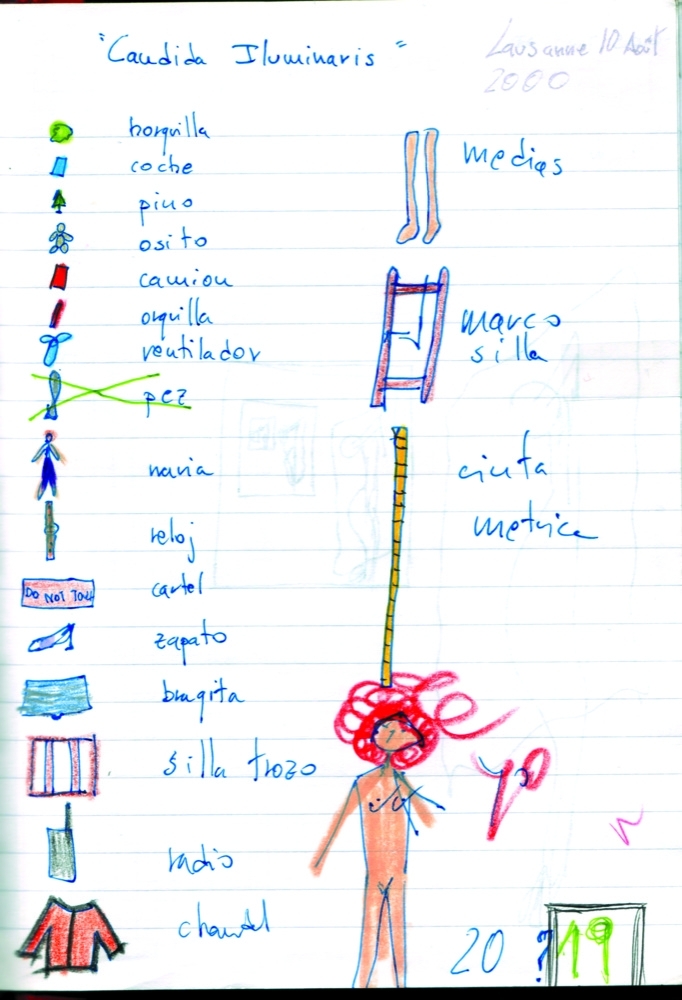 "Candida Iluminaris"
Lausanne 10 Août
2000
horquilla
coche
pino
osito
camion
orquilla
ventilador
pez
reloj
DO NOT TOUCH
cartel
zapato
bragita
silla trozo
radio
medias
marco
silla
cinta
metrica
yo
20 ?
19